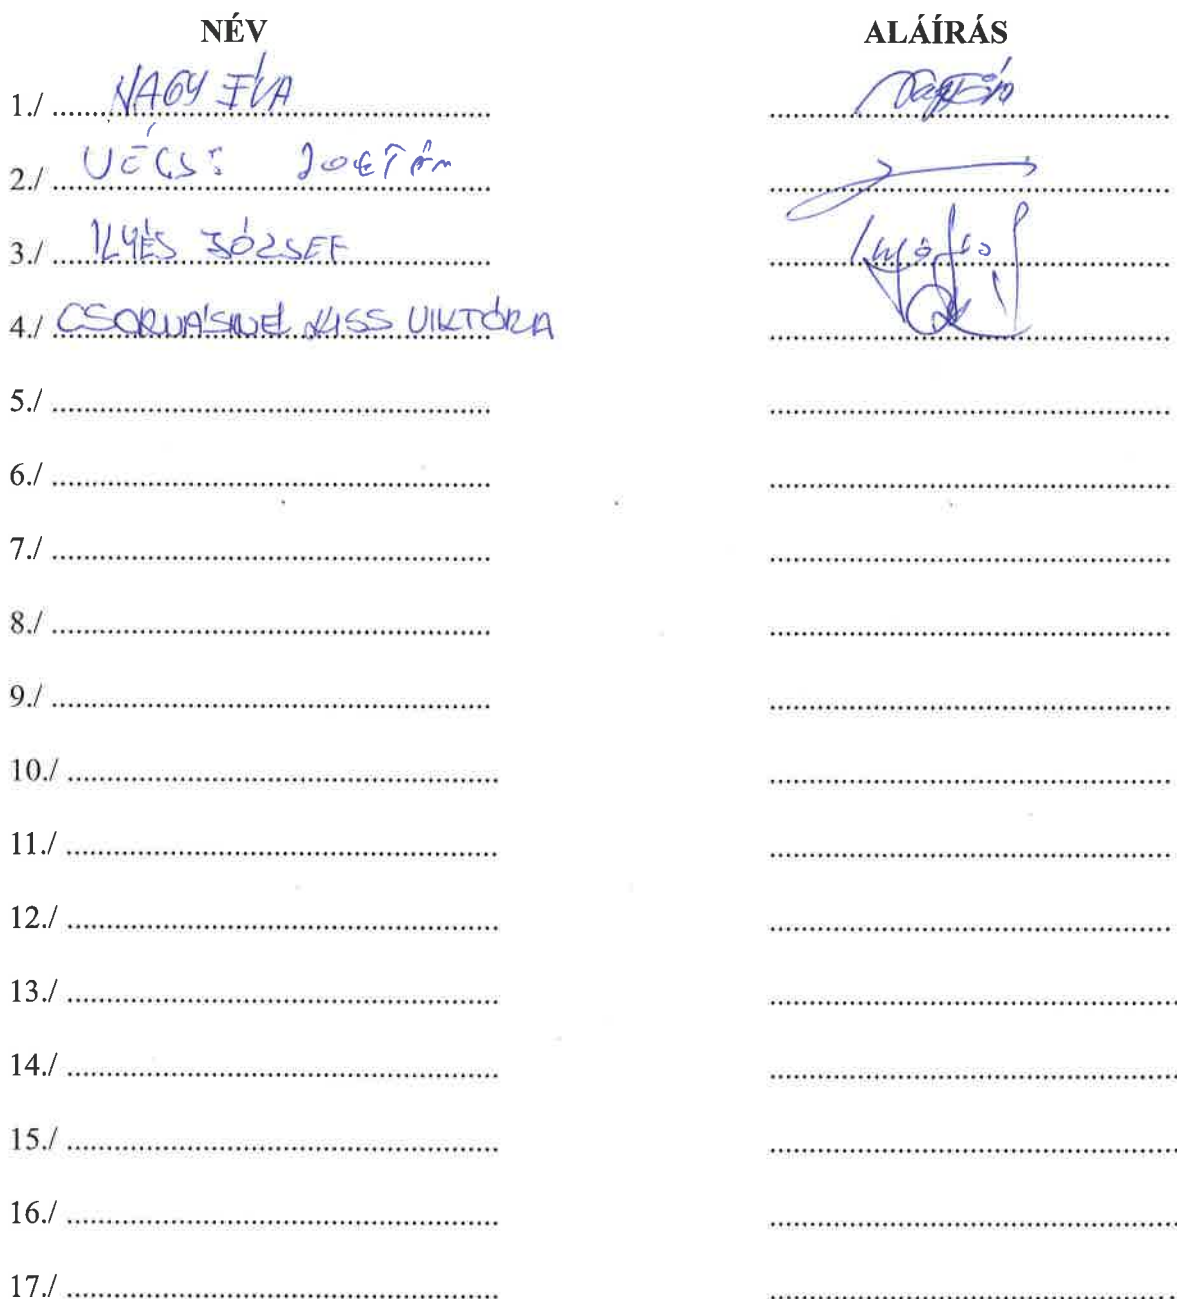 NÉV ALÁÍRÁS
1./ NAGY ÉVA
2./ VÉCSI ZOLTÁN
3./ ILYÉS JÓZSEF
4./ CSORVÁSINÉ KISS VIKTÓRIA
5./
6./
7./
8./
9./
10./
11./
12./
13./
14./
15./
16./
17./